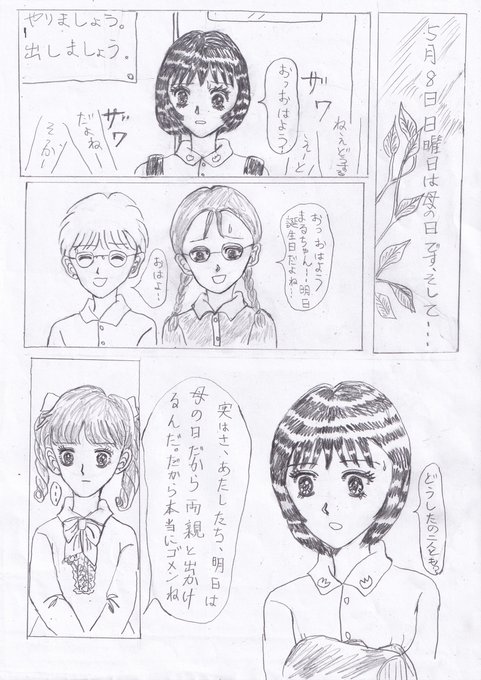 5月8日 日曜日は母の日です、そして・・・・
やりましょう。
出しましょう。
ザワ
おっおはよう?
ザワ
だよね
おっおはよう
まるちゃん…明日
誕生日だよね…
おはよ…
どうしたの二人とも。
実はさ、あたしたち、明日は
母の日だから両親と出かけ
るんだ。だから本当にゴメンね
…